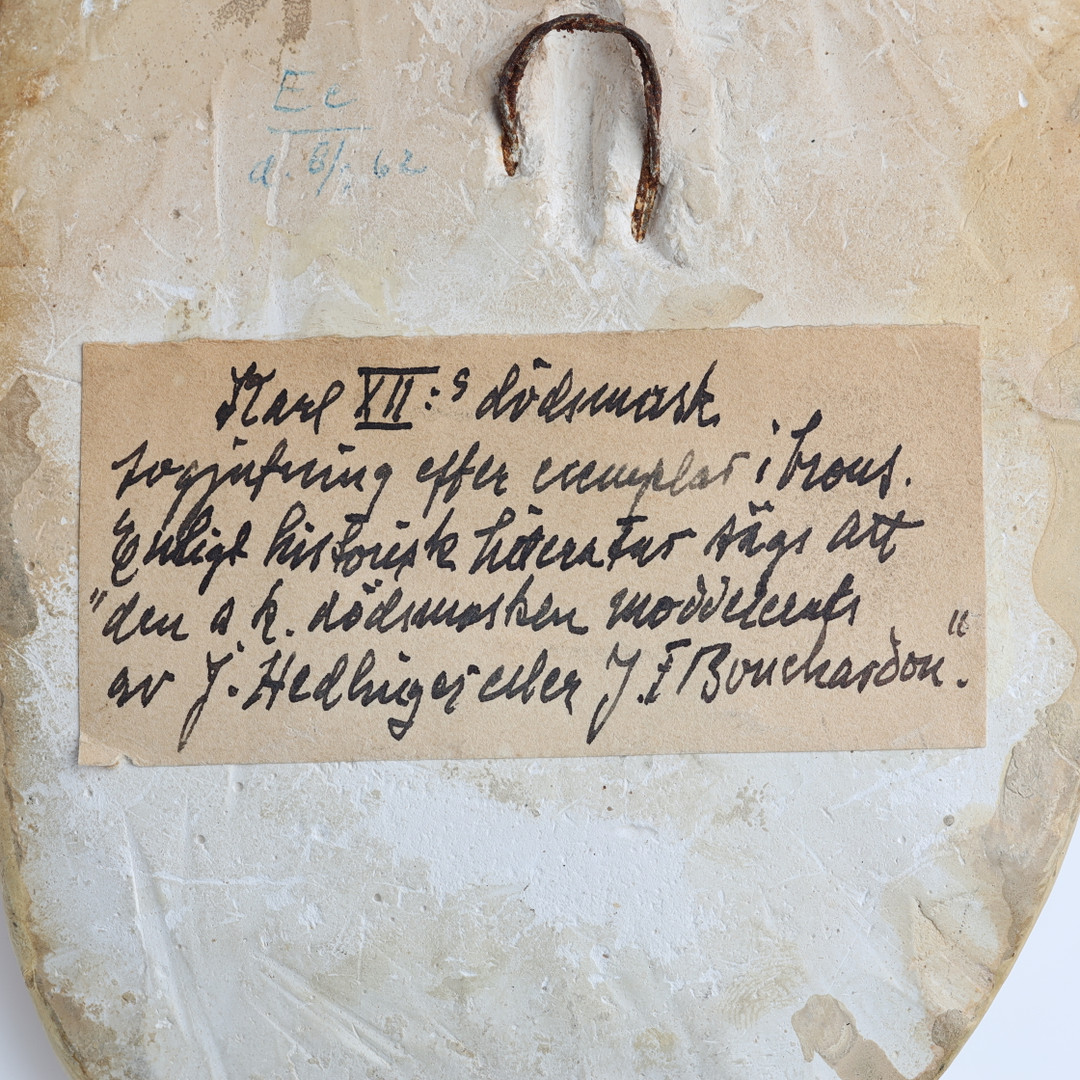 Ee
d. 6/2 62
Karl XII:s dödsmask
avgjutning efter exemplar i brons.
Enligt historisk litteratur sägs att
"den s k. dödsmasken modellerats
av J. Hedlinger eller J. F Bouchardon".